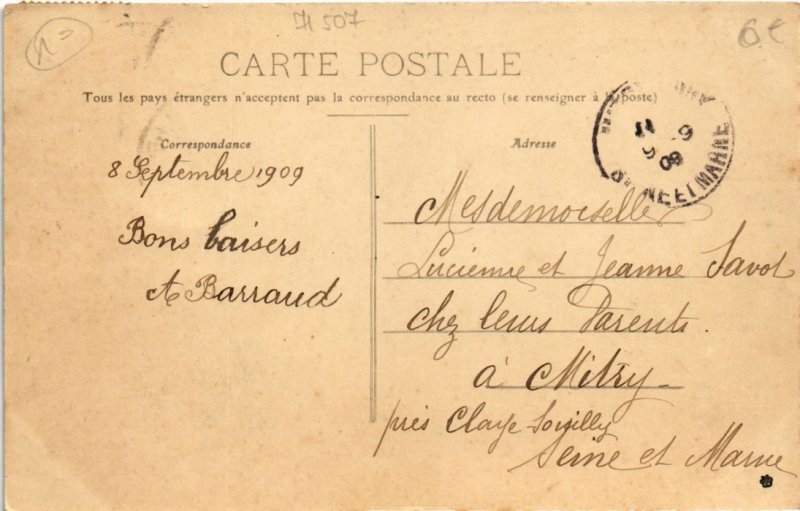 71 507
6€
CARTE POSTALE
Tous les pays étrangers n'acceptent pas la correspondance au recto (se renseigner à la poste)
Correspondance
8 Septembre 1909
Bons baisers
A Barraud
Adresse
11 9
09
SEINE ET MARNE
Mesdemoiselles
Lucienne et Jeanne Savot
chez leurs Parents.
à Mitry
près Claye Souilly
Seine et Marne